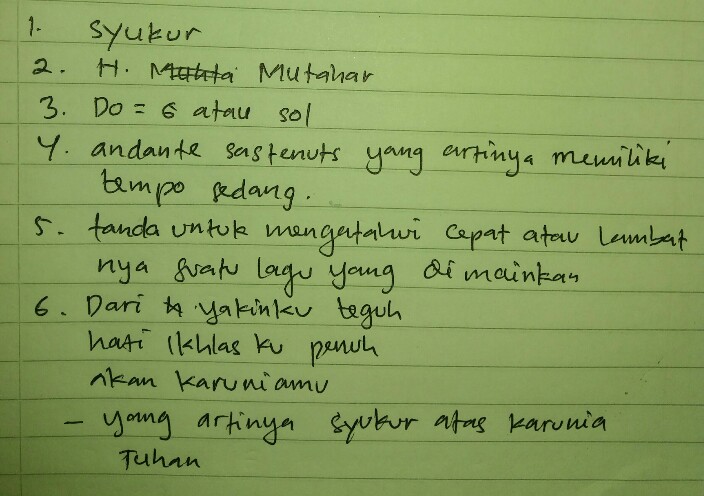 1. Syukur
2. H. Mutahar
3. Do = G atau sol
4. andante sastenuts yang artinya memiliki
tempo sedang.
5. tanda untuk mengatahui cepat atau lambat
nya suatu lagu yang di mainkan
6. Dari yakinku teguh
hati ikhlas ku penuh
akan karuniamu
- yang artinya syukur atas karunia
Tuhan